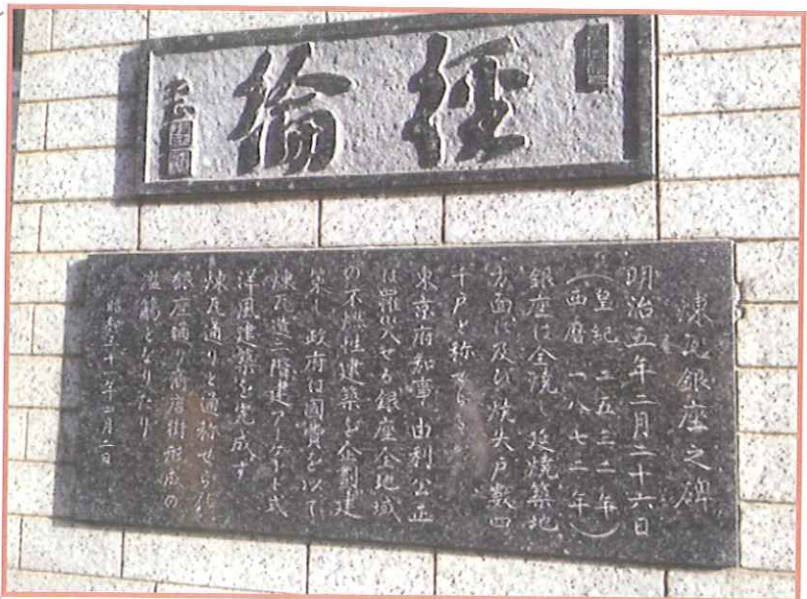 經綸
煉瓦銀座之碑
明治五年二月二十六日
(皇紀二五三二年)
(西暦一八七二年)
銀座は全焼し延焼築地
方面に及び焼失戸数四
千戸と称せらる
東京府知事由利公正
は罹災せる銀座全地域
の不燃性建築を企劃建
策し政府は國費を以て
煉瓦造二階建アーケード式
洋風建築を完成す
煉瓦通りと通称せられ
銀座通り商店街形成の
濫觴となりたり
昭和三十一年四月二日